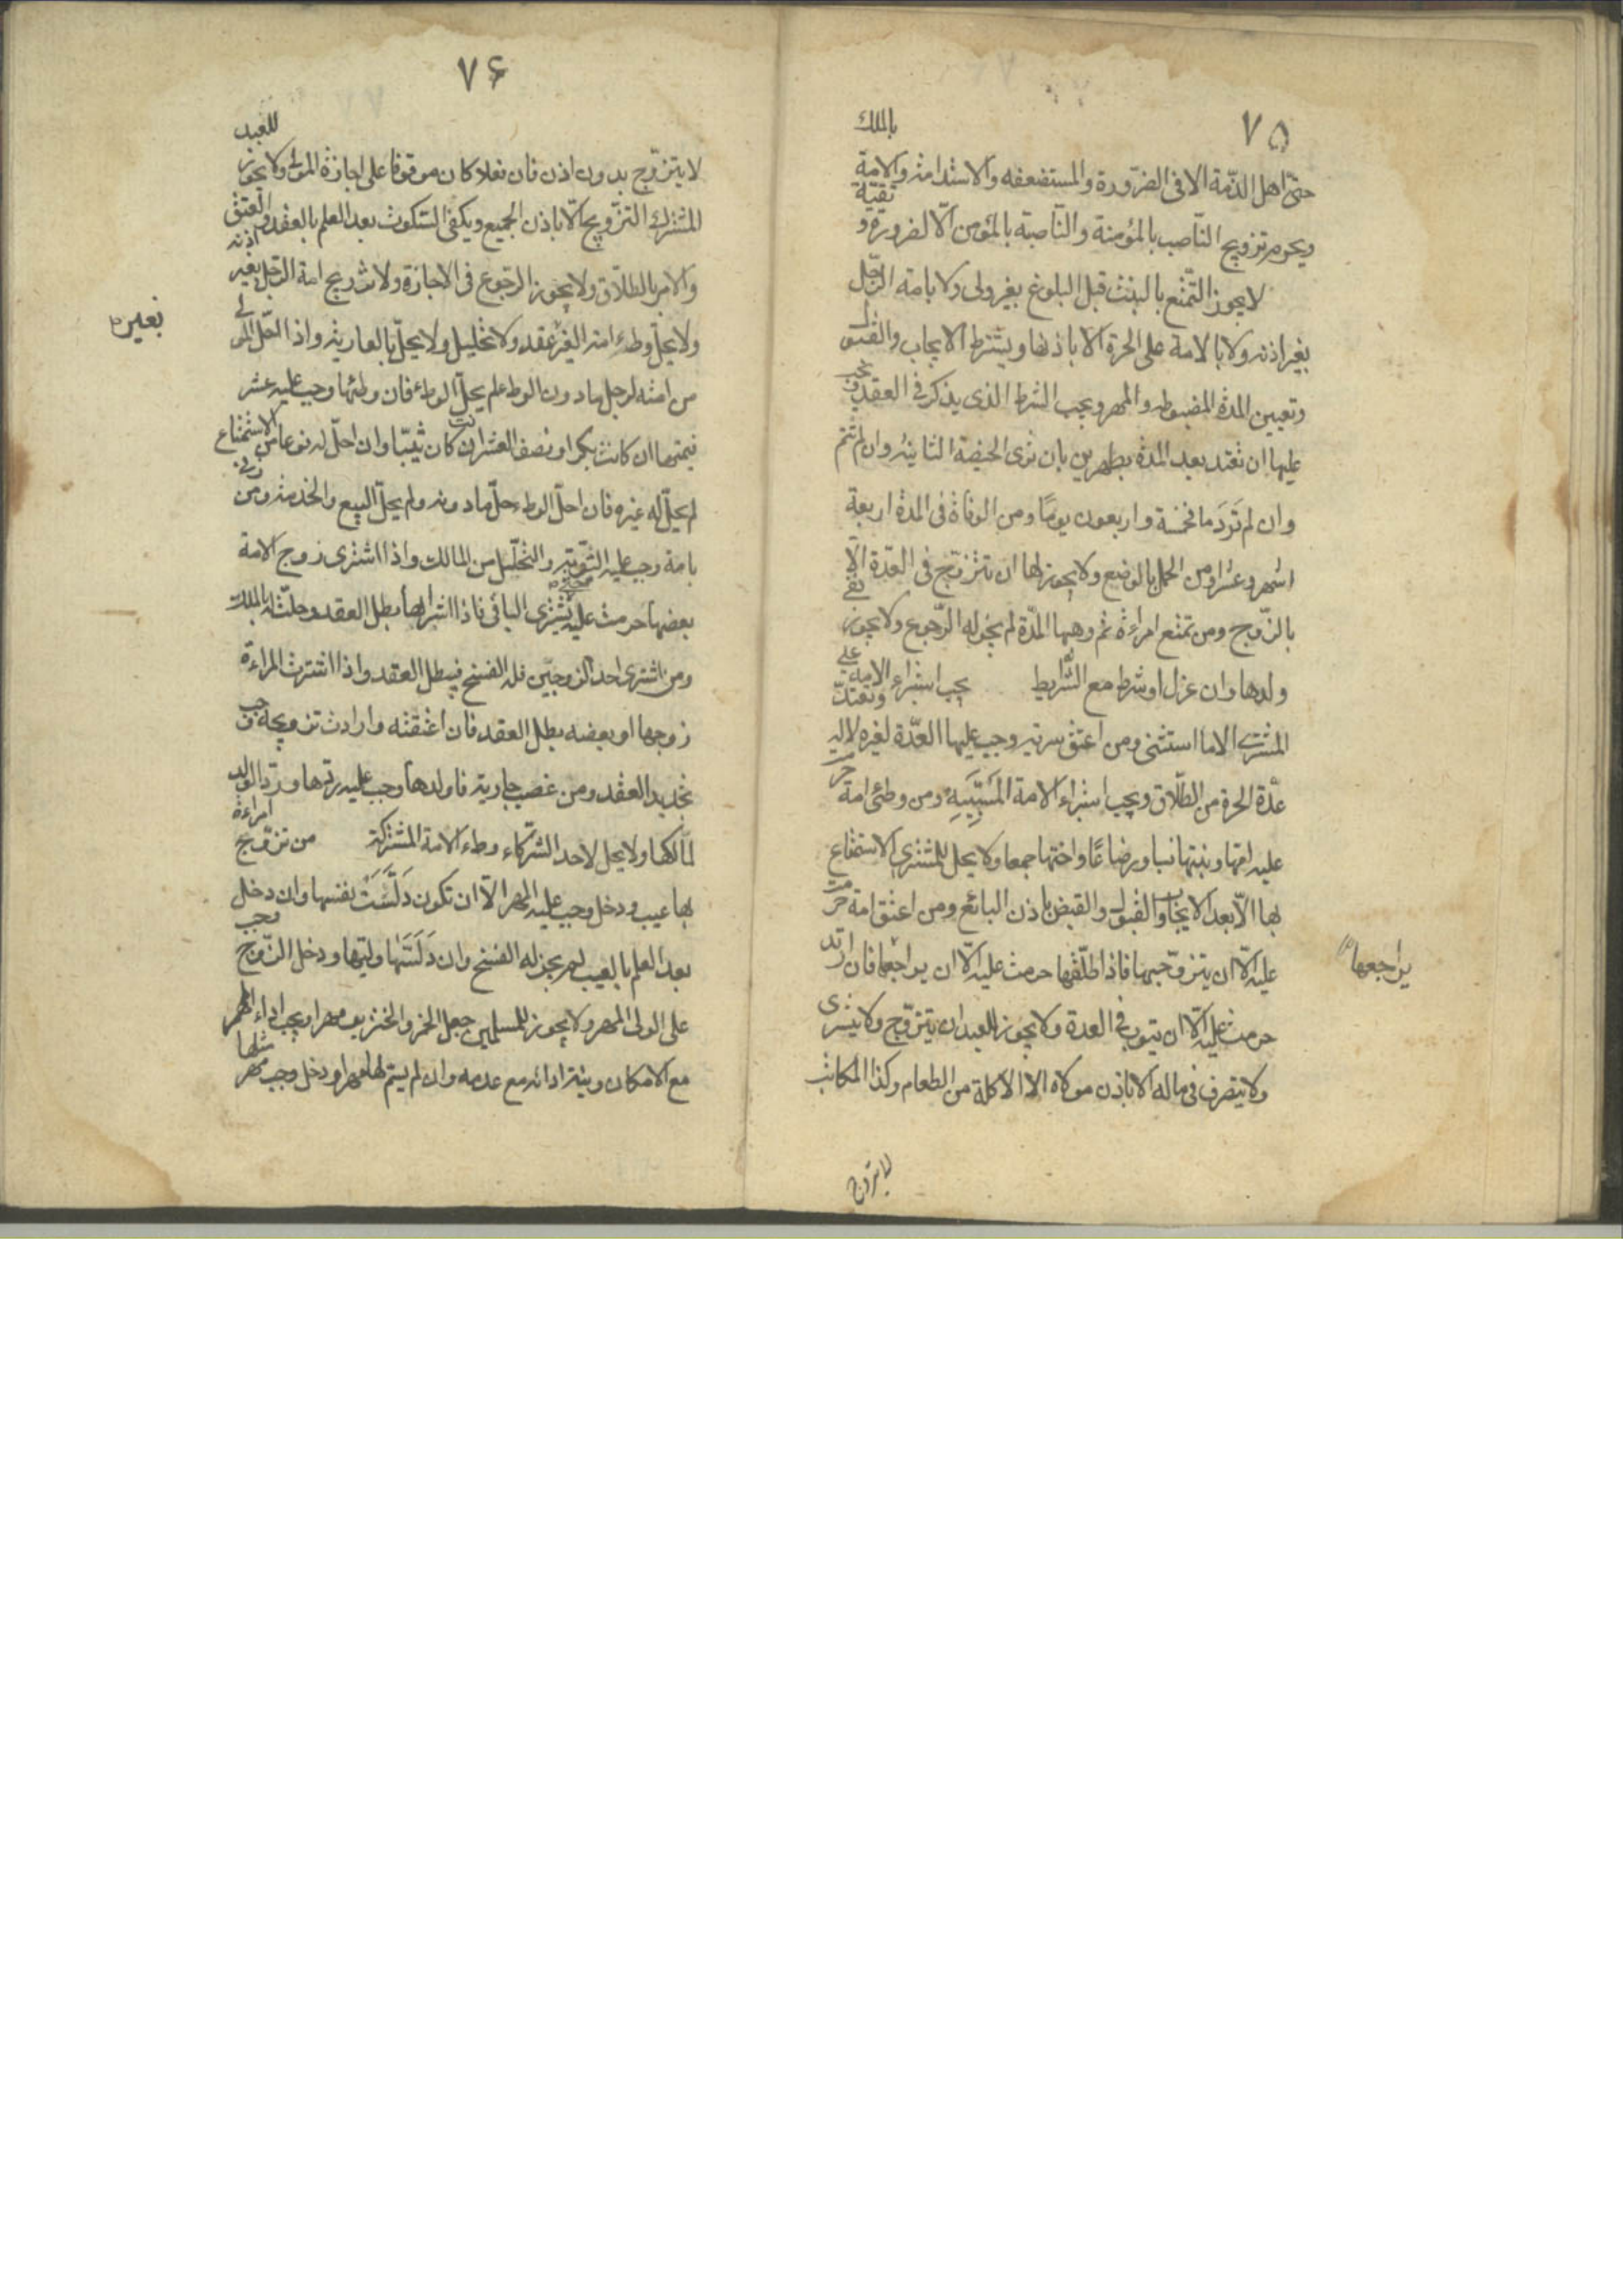 ٧٥
حتى اهل الذمة الا فى الضرورة والمستضعفه والاستدامة والامة بالملك
ويحرم تزويج الناصب بالمؤمنة والناصبة بالمؤمن الا لضرورة و تقية
لا يجوز التمتع بالبنت قبل البلوغ بغير ولى ولا بامة الرجل
بغير اذنه ولا بالامة على الحرة الا باذنها ويشترط الايجاب والقبول
وتعيين المدة المضبوطه والمهر ويجب الشرط الذى يذكر فى العقد و يجب
عليها ان تعتد بعد المدة بطهرين بان ترى الحيضة الثانية وان لم تتم
وان لم تَردَما فخمسة واربعون يومًا ومن الوفاة فى المدة اربعة
اشهر وعشرا ومن الحمل بالوضع ولا يجوز لها ان تتزوج فى العدة الا
بالزوج ومن تمتع امراءة ثم وهبها المدة لم يجز له الرجوع ولا يجوز نفى
ولدها وان عزل او شرط مع الشرايط يجب استبراء الامة على
المشترى الا ما استثنى ومن اعتق سريته وجب عليها العدة لغيره لا له وتعتد
عدة الحرة من الطلاق ويجب استبراء الامة المَسْبِيَّةِ ومن وطئ امة حرمت
عليه امها وبنتها نسبا ورضاعًا واختها جمعا ولا يحل للمشترى الاستمتاع
بها الا بعد الايجاب والقبول والقبض باذن البائع ومن اعتق امة حرمت
عليه الا ان يتزوجها فاذا طلقها حرمت عليه الا ان يراجعها فان ارتد
يراجعها
حرمت عليه الا ان يتوب فى العدة ولا يجوز للعبد ان يتزوج ولا يشترى
ولا يتصرف فى ماله الا باذن مولاه الا الاكلة من الطعام وكذا المكاتب
لا يتزوج
٧۶
لا يتزوج بدون اذن فان فعلا كان موقوفا على اجازة المولى ولا يجوز للعبد
المشترك التزويج الا باذن الجميع ويكفى السكوت بعد العلم بالعقد والعتق
والامر بالطلاق ولا يجوز الرجوع فى الاجازة ولا تزويج امة الرجل بغير اذنه
بغير
ولا يحل وطء امة الغير بغير عقد ولا تحليل ولا يحل بالعارية واذا احل المولى
من امته لرجل ما دون الوطء لم يحل الوطء فان وطئها وجب عليه عشر
قيمتها ان كانت بكرا ونصف العشر ان كانت ثيبا وان احل له نوعا من الاستمتاع
لم يحل له غيره فان احل الوطء حل ما دونه ولم يحل البيع والخدمة ومن زنى
بامة وجب عليه التوبة والتحليل من المالك واذا اشترى زوج الامة
بعضها حرمت عليه حتى يشترى الباقى فاذا اشتراها بطل العقد وحلت له بالملك
ومن اشترى احد الزوجين فله الفسخ فيبطل العقد واذا اشترت المراءة
زوجها او بعضه بطل العقد فان اعتقته وارادت تزويجه وجب
تجديد العقد ومن غصب جارية فاولدها وجب عليه ردها ورد الولد
لمالكها ولا يحل لاحد الشركاء وطء الامة المشتركة من تزوج امراءة
بها عيب ودخل وجب عليه المهر الا ان تكون دَلَّسَت نفسها وان دخل
بعد العلم بالعيب لم يجز له الفسخ وان دَلَسَتْها وليتها ودخل الزوج وجب
على الولى المهر ولا يجوز للمسلمين جعل الخمر والخنزير مهرا ويجب اداء المهر
مع الامكان ونية ادائه مع عدمه وان لم يسم لها مهرا ودخل وجب مهر مثلها